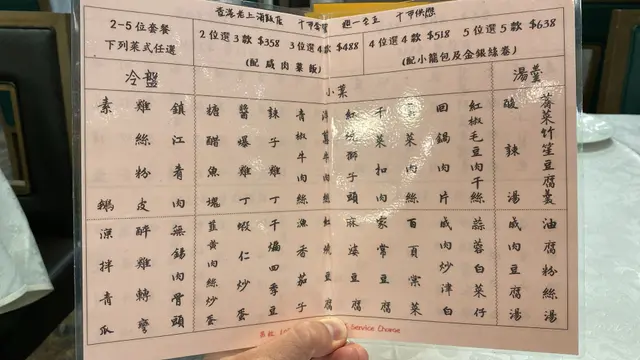 2-5位套餐
下列菜式任選
2位選3款$358
3位選4款$488
(配咸肉菜飯)
4位選4款$518
5位選5款$638
(配小籠包及金銀絲卷)
冷盤
小菜
湯羹
素鵝
雞絲粉皮
鎮江肴肉
糖醋魚塊
醬爆雞丁
辣子雞丁
青椒牛肉絲
牛肉絲
紅燒獅子頭
干菜扣肉
菜肉絲
回鍋肉片
紅椒毛豆肉干絲
酸辣湯
薺菜竹笙豆腐羹
涼拌青瓜
醉雞轉彎
無錫肉骨頭
韮黃肉絲炒蛋
蝦仁炒蛋
干煸四季豆
魚香茄子
紅燒豆腐
麻婆豆腐
家常豆腐
百頁棠菜
咸肉炒津白
蒜蓉白菜仔
咸肉豆腐湯
油腐粉絲湯
Service Charge